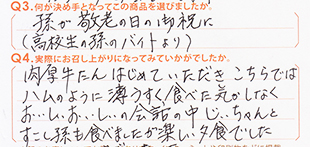 Q3.何が決め手となってこの商品を選びましたか?
孫が敬老の日の御祝に
(高校生の孫のバイトより)
Q4.実際にお召し上がりになってみていかがでしたか。
肉厚牛たんはじめていただきこちらでは
ハムのように薄うすく食べた気がしなく
お〜しい、お〜しいの会話の中じぃちゃんと
すこし孫も食べましたが楽しい夕食でした